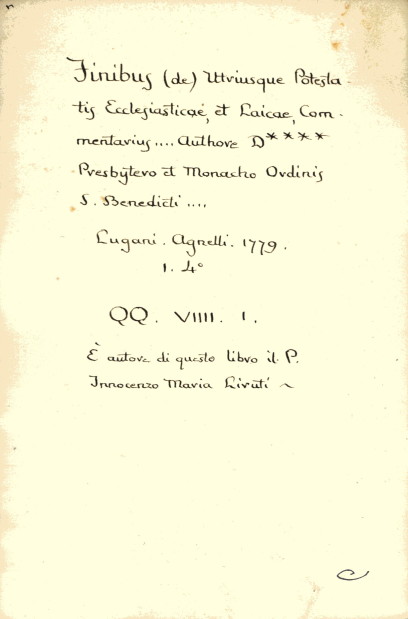 Finibus (de) Utriusque Potesta-
tis Ecclesiasticae, et Laicae, Com-
mentarius .... Authore D****
Presbytero et Monacho Ordinis
S. Benedicti ....
Lugani. Agnelli. 1779.
1. 4°
QQ. VIIII. 1.
È autore di questo libro il P.
Innocenzo Maria Liruti ~